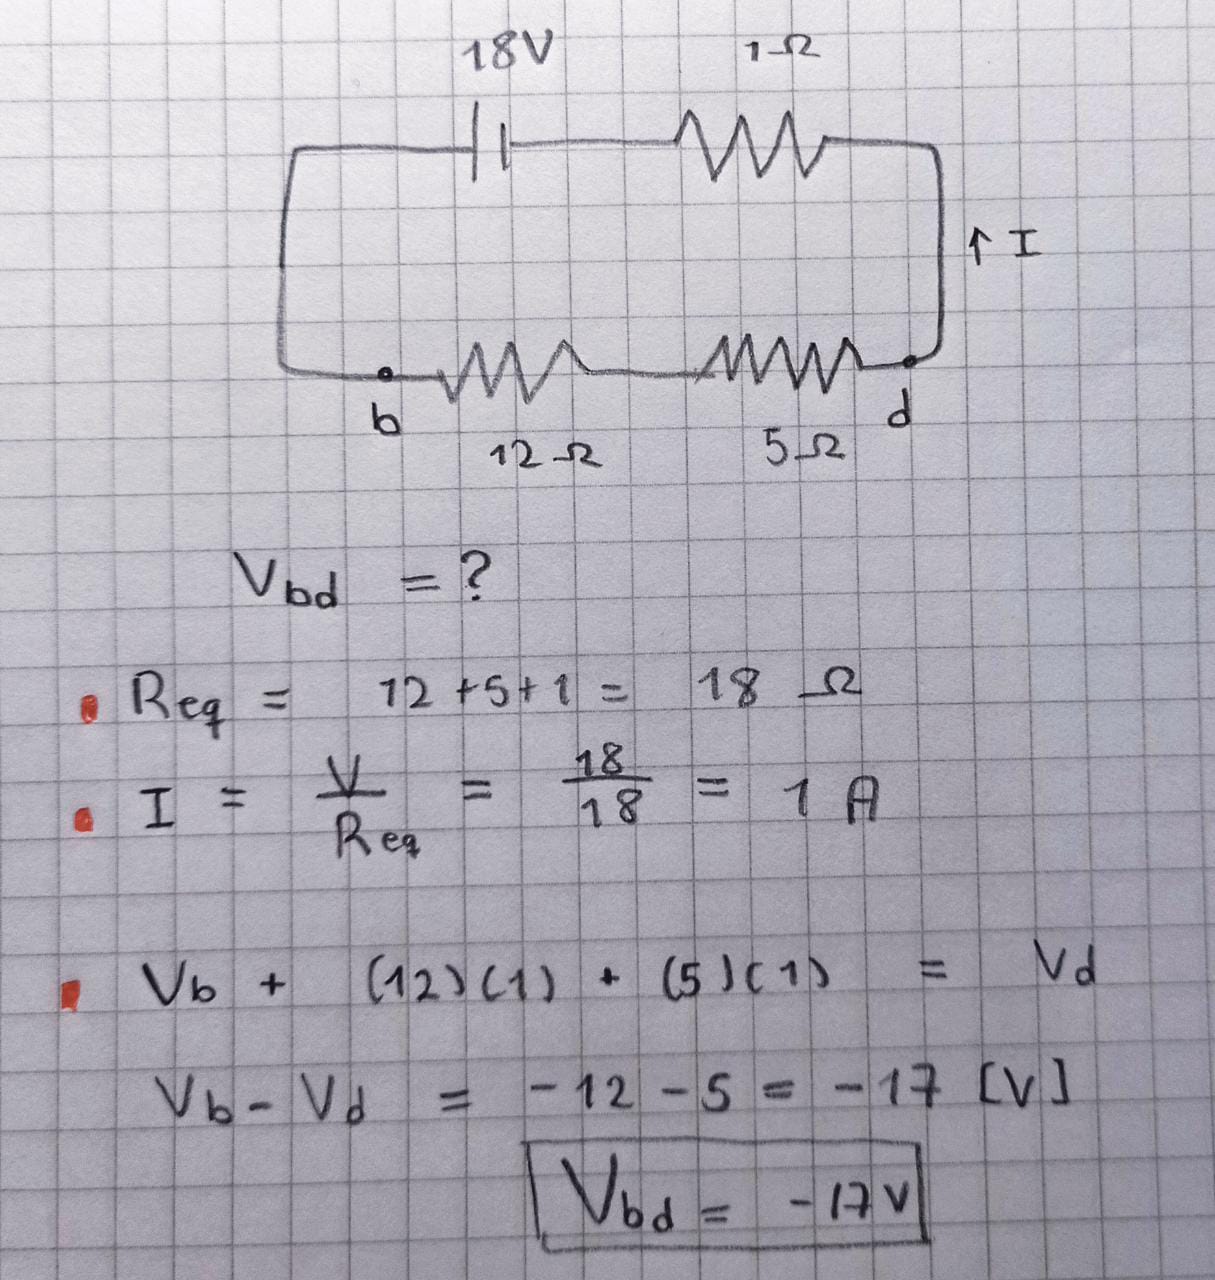 18V 1Ω
↑ I
b d
12Ω 5Ω
Vbd = ?
Req = 12 + 5 + 1 = 18 Ω
I = V/Req = 18/18 = 1 A
Vb + (12)(1) + (5)(1) = Vd
Vb - Vd = -12 - 5 = -17 [V]
Vbd = -17 V